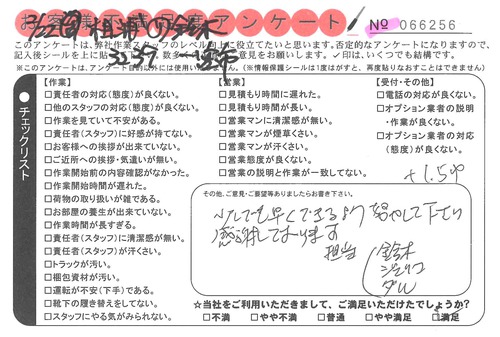 お客様 アンケート
№ 066256
このアンケートは、弊社作業スタッフのレベル向上に役立てたいと思います。否定的なアンケートになりますので、
記入後シールを上に貼 ご意見をお願いします。✓印は、いくつでも結構です。
※このアンケートは、アンケート目的以外には使用いたしません。(※情報保護シールは1度はがすと、再度貼りなおすことはできません)
●チェックリスト
【作業】
□責任者の対応(態度)が良くない。
□他のスタッフの対応(態度)が良くない。
□作業を見ていて不安がある。
□責任者(スタッフ)に好感が持てない。
□お客様への挨拶が出来ていない。
□ご近所への挨拶・気遣いが無い。
□作業開始前の内容確認がなかった。
□作業開始時間が遅れた。
□荷物の取り扱いが雑である。
□お部屋の養生が出来ていない。
□作業時間が長すぎる。
□責任者(スタッフ)に清潔感が無い。
□責任者(スタッフ)が汗くさい。
□トラックが汚い。
□梱包資材が汚い。
□運転が不安(下手)である。
□靴下の履き替えをしてない。
□スタッフにやる気がみられない。
【営業】
□見積もりに遅れた。
□見積もり時間が長い。
□営業マンに清潔感が無い。
□営業マンが煙草くさい。
□営業マンが汗くさい。
□営業態度が良くない。
□営業の説明と作業が一致してない。
【受付・その他】
□電話の対応が良くない。
□オプション業者の説明
・作業が良くない。
□オプション業者の対応
(態度)が良くない。
その他、ご意見・ご要望等ありましたらお書き下さい。
少しでも早くできるよう努力して下さい
感謝しております
担当
鈴木
ダル
☆当社をご利用いただきまして、ご満足いただけたでしょうか?
□不満 □やや不満 □普通 □やや満足 □満足